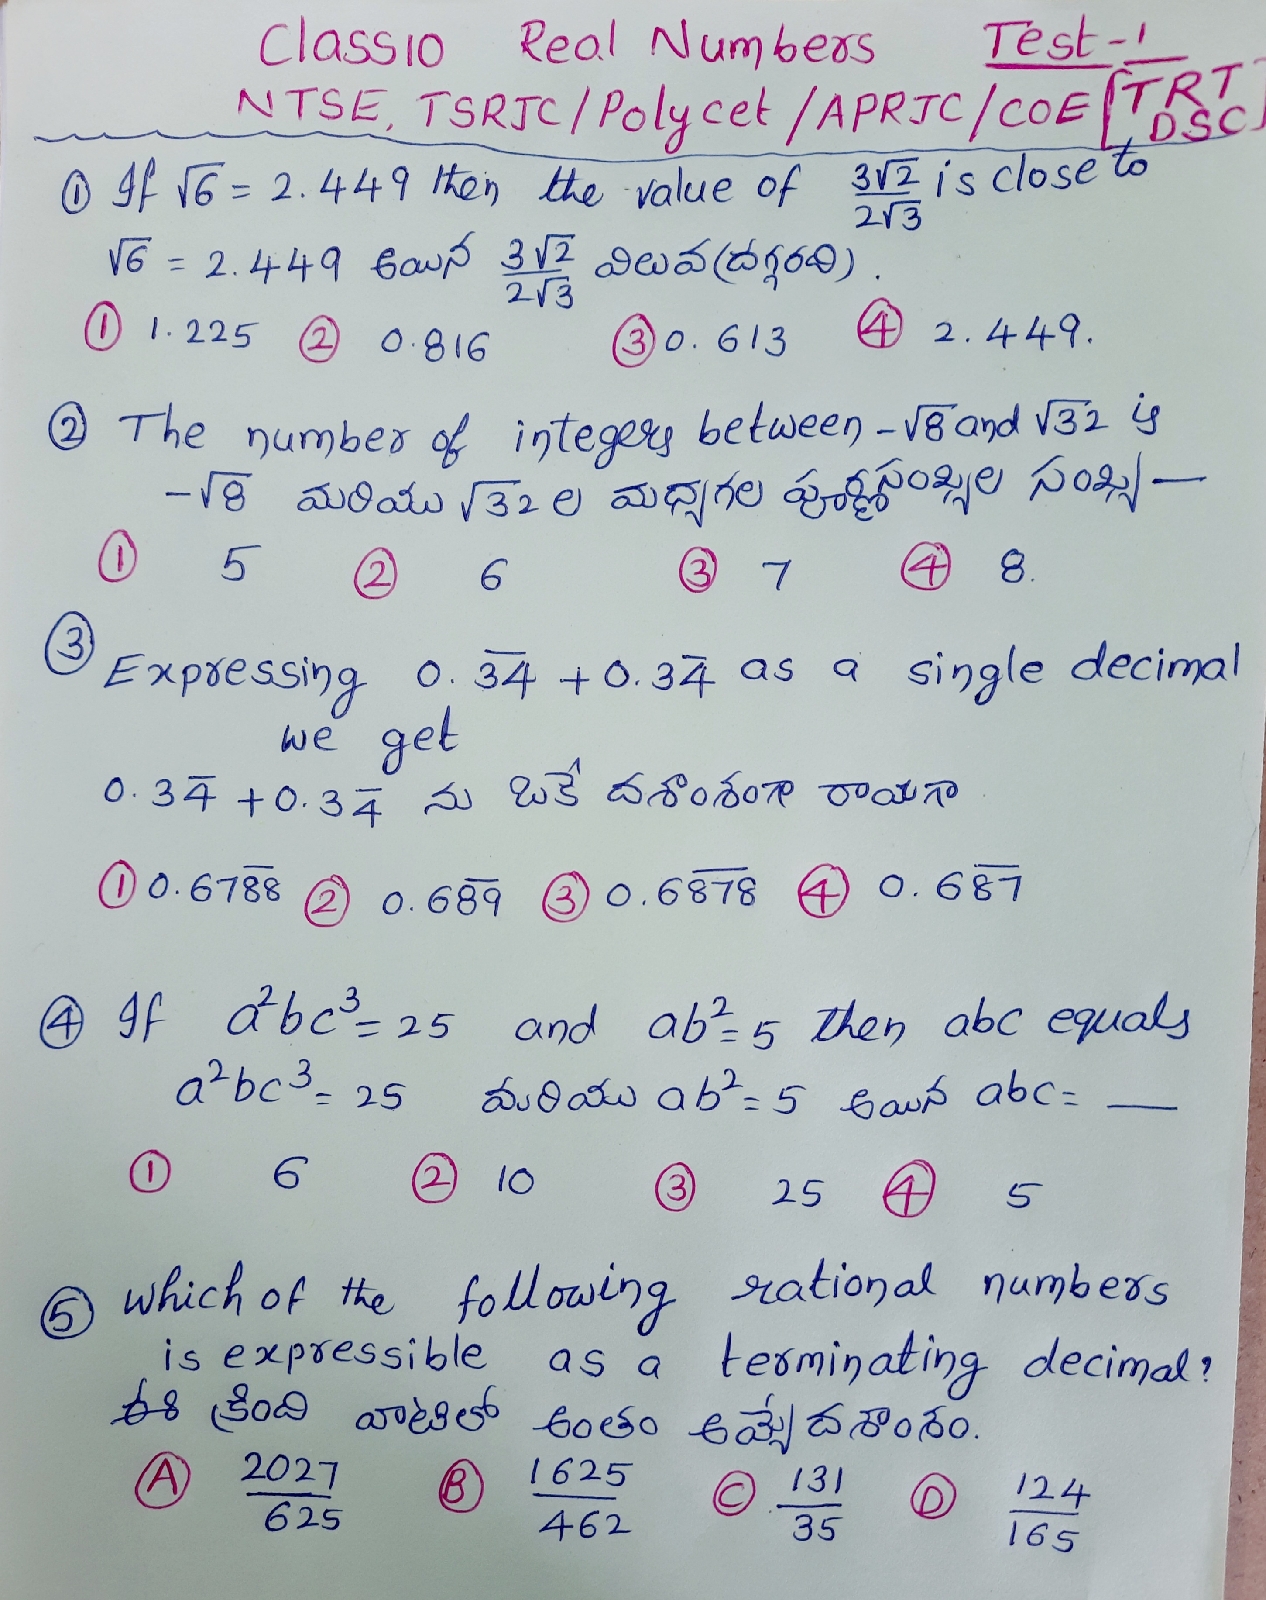 Class 10 Real Numbers Test-1
NTSE, TSRJC/Polycet/APRJC/COE [TRT DSC]
① If √6 = 2.449 then the value of 3√2/2√3 is close to
√6 = 2.449 అయిన 3√2/2√3 విలువ (దగ్గరది).
① 1.225 ② 0.816 ③ 0.613 ④ 2.449.
② The number of integers between -√8 and √32 is
-√8 మరియు √32 ల మధ్యగల పూర్ణసంఖ్యల సంఖ్య —
① 5 ② 6 ③ 7 ④ 8.
③ Expressing 0.3̅4̅ + 0.34̅ as a single decimal
we get
0.34̅ + 0.34̅ ను ఒకే దశాంశంగా రాయగా
① 0.678̅8̅ ② 0.68̅9̅ ③ 0.68̅7̅8̅ ④ 0.68̅7̅
④ If a²bc³ = 25 and ab² = 5 then abc equals
a²bc³ = 25 మరియు ab² = 5 అయిన abc = —
① 6 ② 10 ③ 25 ④ 5
⑤ which of the following rational numbers
is expressible as a terminating decimal?
ఈ క్రింది వాటిలో అంతం అయ్యే దశాంశం.
Ⓐ 2027/625 Ⓑ 1625/462 Ⓒ 131/35 Ⓓ 124/165